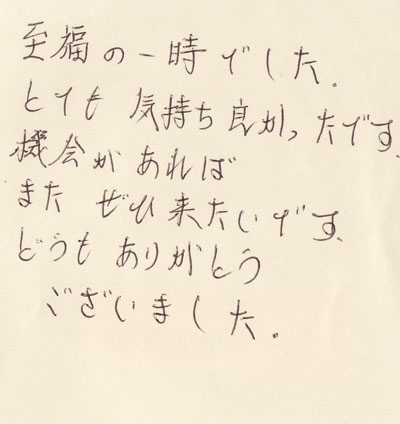 至福の一時でした。
とても気持ち良かったです。
機会があれば
また ぜひ来たいです。
どうもありがとう
ございました。